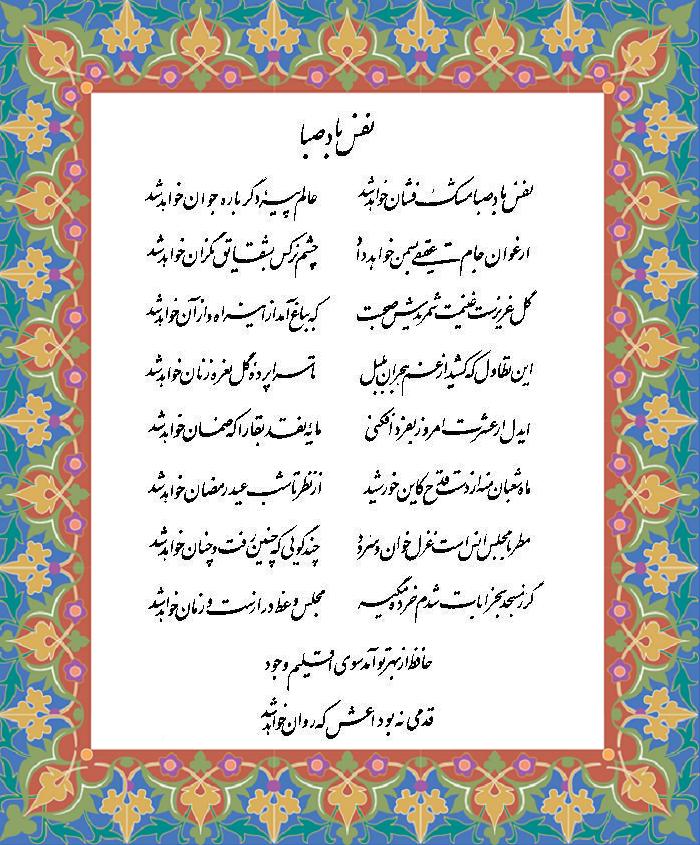 نفس باد صبا
نفس باد صبا مشک فشان خواهد شد عالم پیر دگرباره جوان خواهد شد
ارغوان جام عقیقی بسمن خواهد داد چشم نرگس بشقایق نگران خواهد شد
گل عزیزست غنیمت شمریدش صحبت که بباغ آمد ازین راه و از آن خواهد شد
این تطاول که کشید از غم هجران بلبل تا سراپرده گل نعره زنان خواهد شد
ایدل ار عشرت امروز بفردا فکنی مایه نقد بقا را که ضمان خواهد شد
ماه شعبان منه از دست قدح کاین خورشید از نظر تا شب عید رمضان خواهد شد
مطربا مجلس انس است غزل خوان و سرود چند گویی که چنین رفت و چنان خواهد شد
گر ز مسجد بخرابات شدم خرده مگیر مجلس وعظ درازست و زمان خواهد شد
حافظ از بهر تو آمد سوی اقلیم وجود
قدمی نه بوداعش که روان خواهد شد